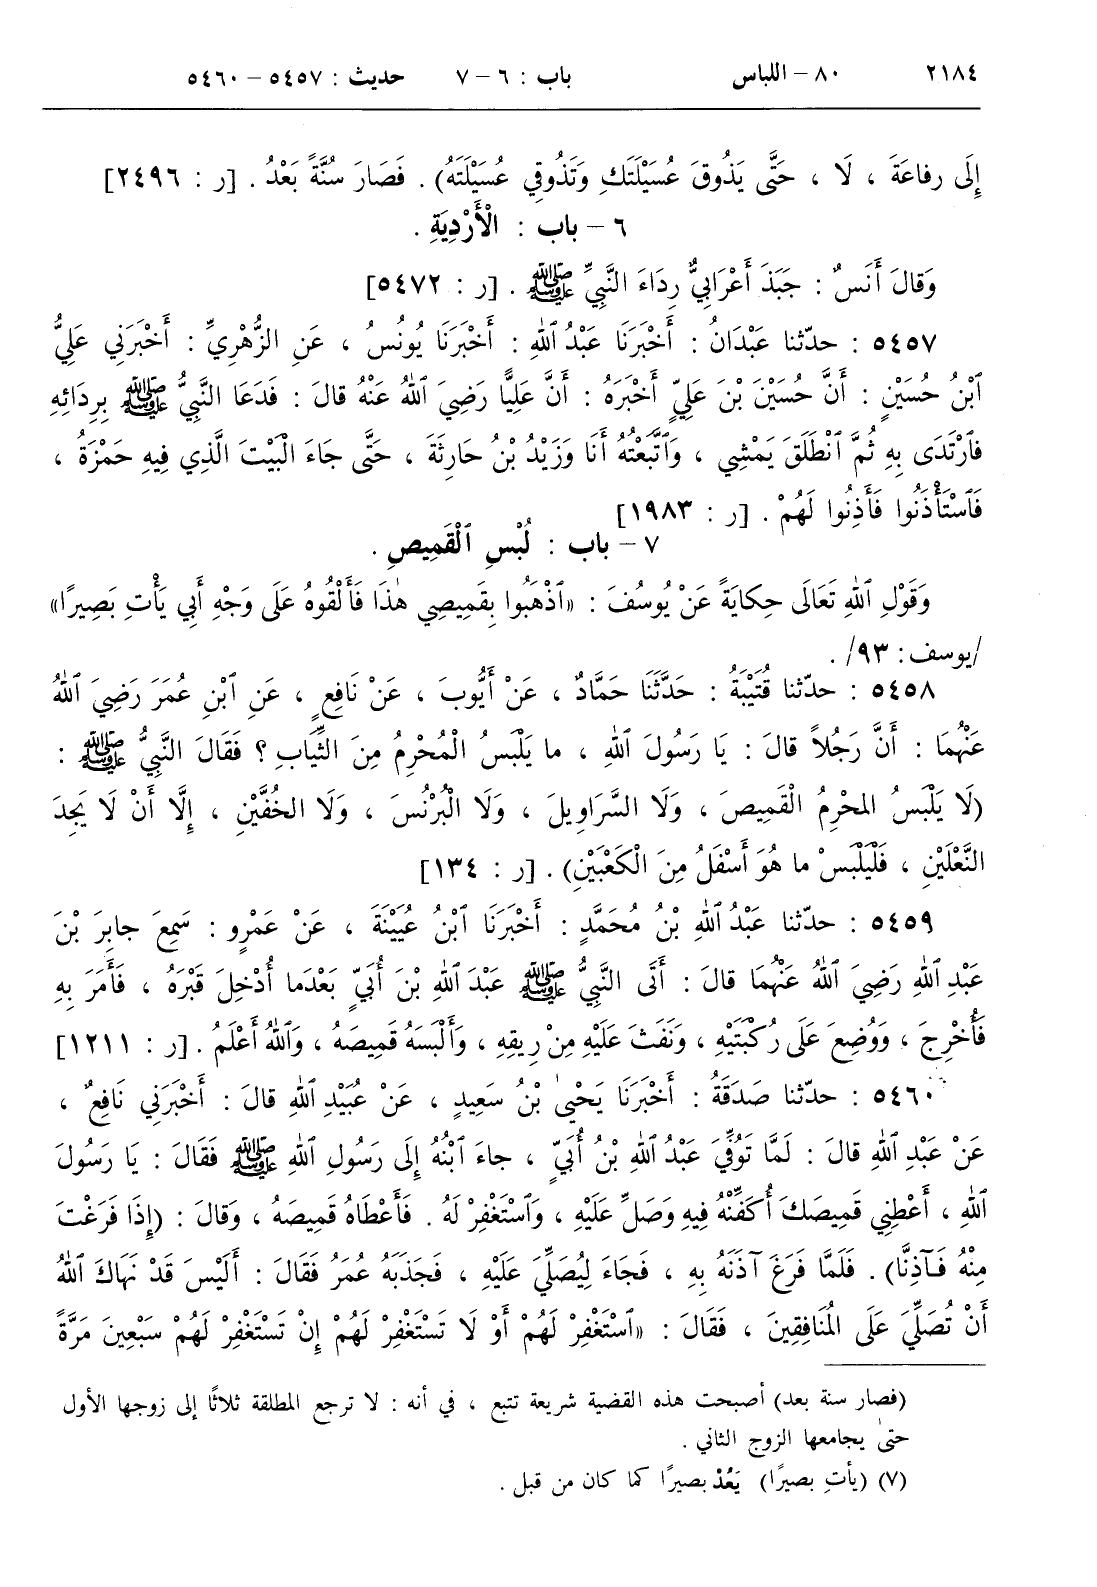 ٢١٨٤ ٨٠ – اللباس باب : ٦ – ٧ حديث : ٥٤٥٧ – ٥٤٦٠
إِلَى رِفاعَةَ ، لَا ، حَتَّى يَذُوقَ عُسَيْلَتَكِ وَتَذُوقِي عُسَيْلَتَهُ) . فَصَارَ سُنَّةً بَعْدُ . [ر : ٢٤٩٦]
٦ – باب : الْأَرْدِيَةِ .
وَقالَ أَنَسٌ : جَبَذَ أَعْرَابِيٌّ رِدَاءَ النَّبِيِّ ﷺ . [ر : ٥٤٧٢]
٥٤٥٧ : حدّثنا عَبْدَانُ : أَخْبَرَنَا عَبْدُ ٱللهِ : أَخْبَرَنَا يُونُسُ ، عَنِ الزُّهْرِيِّ : أَخْبَرَنِي عَلِيُّ
ٱبْنُ حُسَيْنٍ : أَنَّ حُسَيْنَ بْنَ عَلِيٍّ أَخْبَرَهُ : أَنَّ عَلِيًّا رَضِيَ ٱللهُ عَنْهُ قالَ : فَدَعَا النَّبِيُّ ﷺ بِرِدَائِهِ
فَارْتَدَى بِهِ ثُمَّ ٱنْطَلَقَ يَمْشِي ، وَٱتَّبَعْتُهُ أَنَا وَزَيْدُ بْنُ حَارِثَةَ ، حَتَّى جاءَ الْبَيْتَ الَّذِي فِيهِ حَمْزَةُ ،
فَٱسْتَأْذَنُوا فَأَذِنُوا لَهُمْ . [ر : ١٩٨٣]
٧ – باب : لُبْسِ ٱلْقَمِيصِ .
وَقَوْلِ ٱللهِ تَعَالَى حِكايَةً عَنْ يُوسُفَ : «ٱذْهَبُوا بِقَمِيصِي هٰذَا فَأَلْقُوهُ عَلَى وَجْهِ أَبِي يَأْتِ بَصِيرًا»
/يوسف : ٩٣/ .
٥٤٥٨ : حدّثنا قُتَيْبَةُ : حَدَّثَنَا حَمَّادٌ ، عَنْ أَيُّوبَ ، عَنْ نَافِعٍ ، عَنِ ٱبْنِ عُمَرَ رَضِيَ ٱللهُ
عَنْهُمَا : أَنَّ رَجُلاً قالَ : يَا رَسُولَ ٱللهِ ، ما يَلْبَسُ الْمُحْرِمُ مِنَ الثِّيَابِ ؟ فَقَالَ النَّبِيُّ ﷺ :
(لَا يَلْبَسُ المحْرِمُ الْقَمِيصَ ، وَلَا السَّرَاوِيلَ ، وَلَا الْبُرْنُسَ ، وَلَا الخُفَّيْنِ ، إِلَّا أَنْ لَا يَجِدَ
النَّعْلَيْنِ ، فَلْيَلْبَسْ ما هُوَ أَسْفَلُ مِنَ الْكَعْبَيْنِ) . [ر : ١٣٤]
٥٤٥٩ : حدّثنا عَبْدُ ٱللهِ بْنُ مُحَمَّدٍ : أَخْبَرَنَا ٱبْنُ عُيَيْنَةَ ، عَنْ عَمْرٍو : سَمِعَ جابِرَ بْنَ
عَبْدِ ٱللهِ رَضِيَ ٱللهُ عَنْهُمَا قالَ : أَتَى النَّبِيُّ ﷺ عَبْدَ ٱللهِ بْنَ أُبَيٍّ بَعْدَما أُدْخِلَ قَبْرَهُ ، فَأَمَرَ بِهِ
فَأُخْرِجَ ، وَوُضِعَ عَلَى رُكْبَتَيْهِ ، وَنَفَثَ عَلَيْهِ مِنْ رِيقِهِ ، وَأَلْبَسَهُ قَمِيصَهُ ، وَٱللهُ أَعْلَمُ .[ر : ١٢١١]
٥٤٦٠ : حدّثنا صَدَقَةُ : أَخْبَرَنَا يَحْيىٰ بْنُ سَعِيدٍ ، عَنْ عُبَيْدِ ٱللهِ قالَ : أَخْبَرَنِي نَافِعٌ ،
عَنْ عَبْدِ ٱللهِ قالَ : لَمَّا تَوُفِّيَ عَبْدُ ٱللهِ بْنُ أُبَيٍّ ، جاءَ ٱبْنُهُ إِلَى رَسُولِ ٱللهِ ﷺ فَقَالَ : يَا رَسُولَ
ٱللهِ ، أَعْطِنِي قَمِيصَكَ أُكَفِّنْهُ فِيهِ وَصَلِّ عَلَيْهِ ، وَٱسْتَغْفِرْ لَهُ . فَأَعْطَاهُ قَمِيصَهُ ، وَقالَ : (إِذَا فَرَغْتَ
مِنْهُ فَآذِنَّا) . فَلَمَّا فَرَغَ آذَنَهُ بِهِ ، فَجَاءَ لِيُصَلِّيَ عَلَيْهِ ، فَجَذَبَهُ عُمَرُ فَقَالَ : أَلَيْسَ قَدْ نَهَاكَ ٱللهُ
أَنْ تُصَلِّيَ عَلَى المُنَافِقِينَ ، فَقَالَ : «ٱسْتَغْفِرْ لَهُمْ أَوْ لَا تَسْتَغْفِرْ لَهُمْ إِنْ تَسْتَغْفِرْ لَهُمْ سَبْعِينَ مَرَّةً
(فصار سنة بعد) أصبحت هذه القضية شريعة تتبع ، في أنه : لا ترجع المطلقة ثلاثًا إلى زوجها الأول
حتىٰ يجامعها الزوج الثاني .
(٧) (يأتِ بصيرًا) يَعُدْ بصيرًا كما كان من قبل .